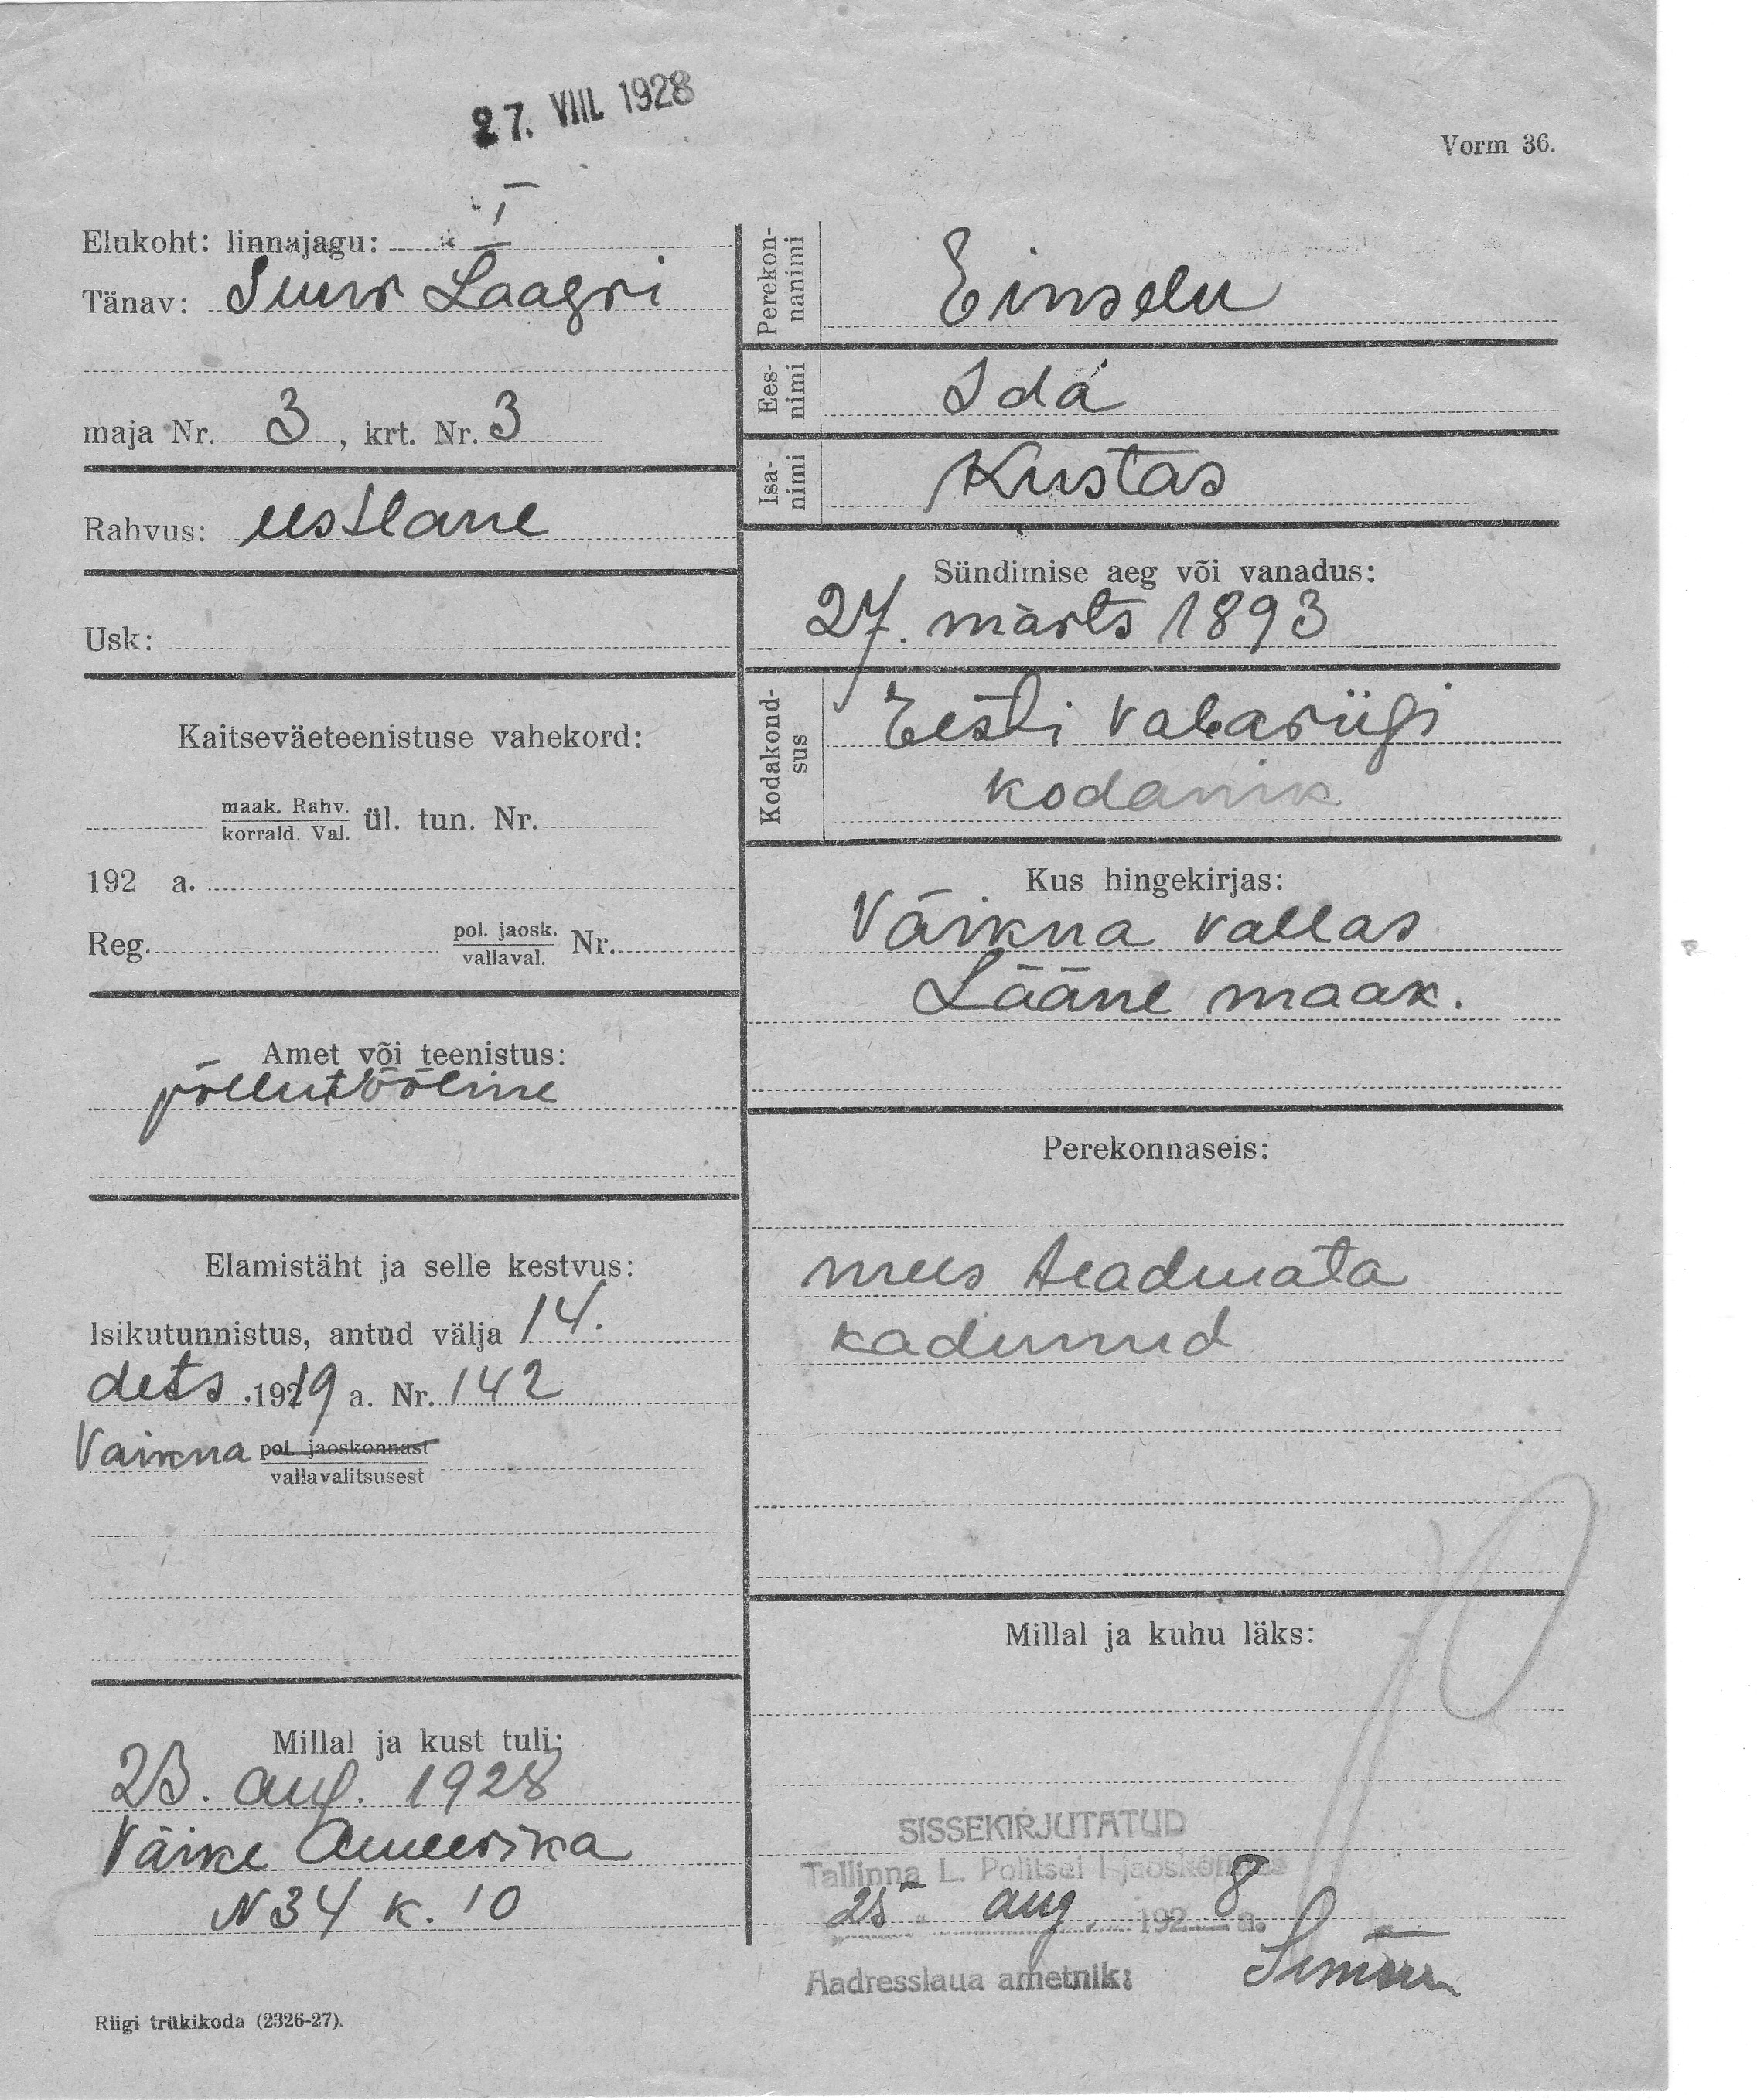 27. VIII. 1928
Vorm 36.
Elukoht: linnajagu: I
Tänav: Suur Laagri
maja Nr. 3, krt. Nr. 3
Rahvus: eestlane
Usk:
Kaitseväeteenistuse vahekord:
maak. Rahv.
korrald. Val. ül. tun. Nr.
192 a.
Reg. pol. jaosk.
vallaval. Nr.
Amet või teenistus:
põllutööline
Elamistäht ja selle kestvus:
Isikutunnistus, antud välja 14.
dets. 1919 a. Nr. 142
Vaikna pol. jaoskonnast
vallavalitsusest
Millal ja kust tuli:
23. aug. 1928
Väike Ameerika
N 34 k. 10
Riigi trükikoda (2326-27).
Perekon-
nanimi
Einselu
Ees-
nimi
Ida
Isa-
nimi
Kustas
Sündimise aeg või vanadus:
27. märts 1893
Kodakond-
sus
Eesti vabariigi
kodanik
Kus hingekirjas:
Väikna vallas
Lääne maak.
Perekonnaseis:
mees teadmata
kadunud
Millal ja kuhu läks:
SISSEKIRJUTATUD
Tallinna L. Politsei I jaoskonnas
25 aug. 1928 a.
Aadresslaua ametnik: